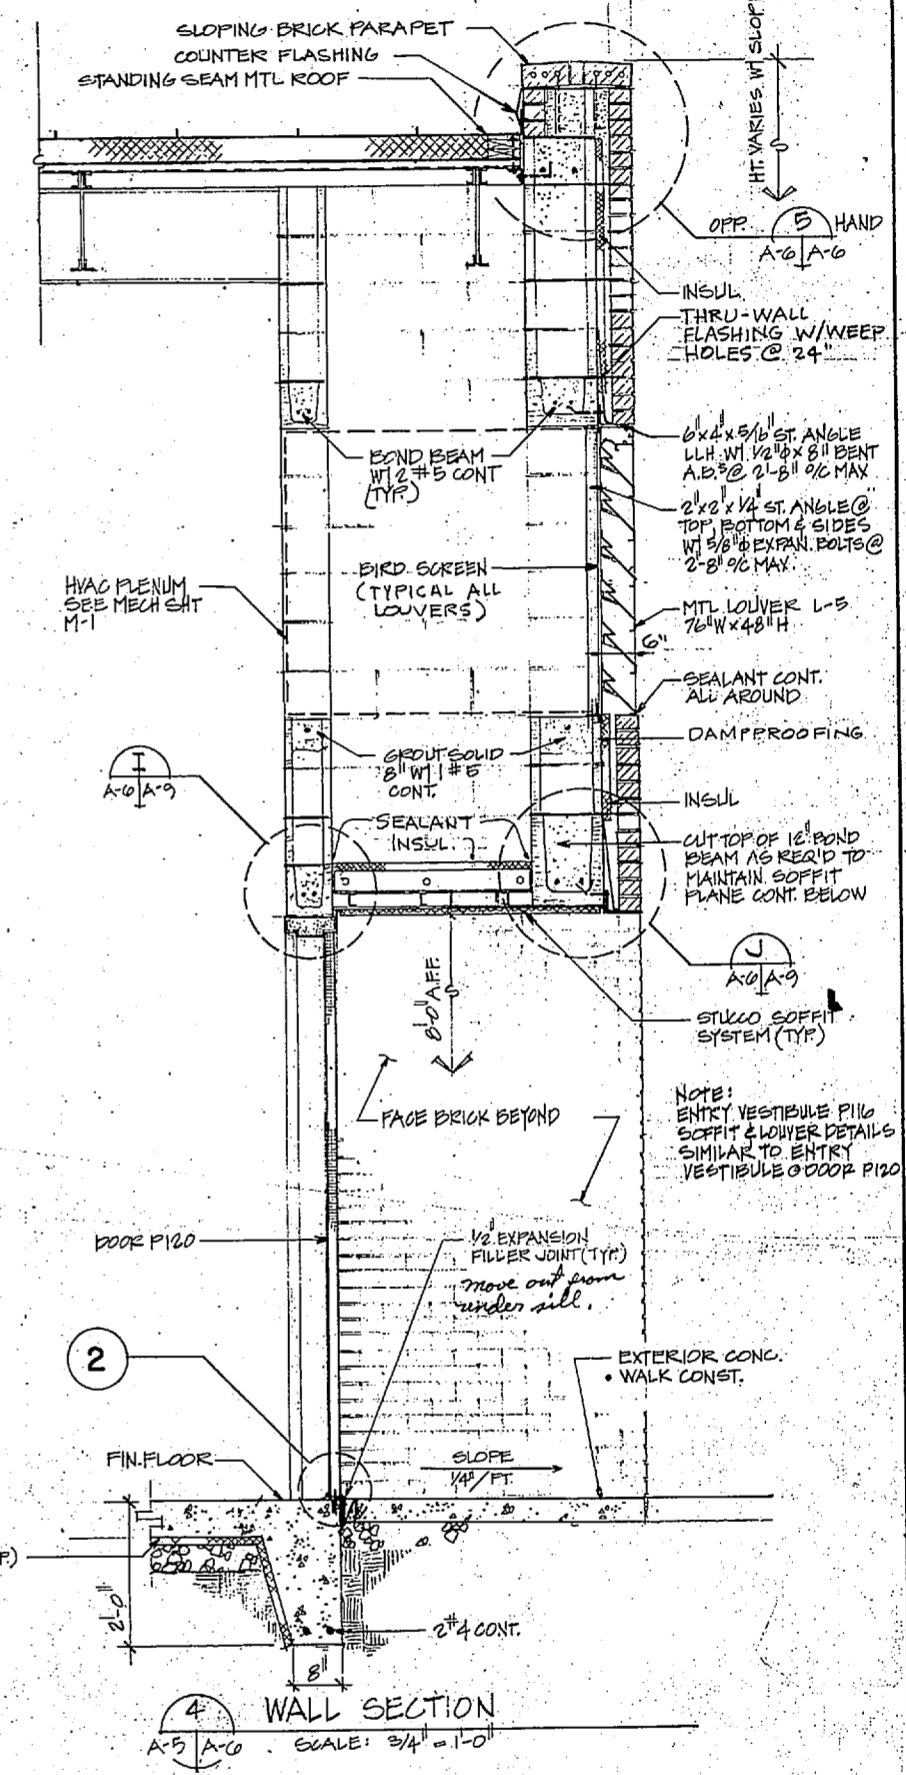 SLOPING BRICK PARAPET
COUNTER FLASHING
STANDING SEAM MTL ROOF
HT. VARIES W/ SLOPE
OPP. 5 HAND
A-6 A-6
INSUL.
THRU-WALL
FLASHING W/WEEP
HOLES @ 24"
6"x4"x5/16" ST. ANGLE
LLH W/ 1/2"ϕx8" BENT
A.B.'S @ 2'-8" O/C MAX
2"x2"x1/4" ST. ANGLE @
TOP, BOTTOM & SIDES
W/ 5/8"ϕ EXPAN. BOLTS @
2'-8" O/C MAX.
BOND BEAM
W/ 2 #5 CONT
(TYP.)
BIRD SCREEN
(TYPICAL ALL
LOUVERS)
HVAC PLENUM
SEE MECH SHT
M-1
MTL LOUVER L-5
76"W x 48"H
6"
SEALANT CONT.
ALL AROUND
DAMPPROOFING
GROUT SOLID
8" W/ 1 #5
CONT.
I
A-6 A-9
INSUL
SEALANT
INSUL.
CUT TOP OF 12" BOND
BEAM AS REQ'D TO
MAINTAIN SOFFIT
PLANE CONT. BELOW
J
A-6 A-9
8'-0" A.F.F.
STUCCO SOFFIT
SYSTEM (TYP.)
FACE BRICK BEYOND
NOTE:
ENTRY VESTIBULE P116
SOFFIT & LOUVER DETAILS
SIMILAR TO ENTRY
VESTIBULE @ DOOR P120
DOOR P120
1/2" EXPANSION
FILLER JOINT (TYP.)
move out from
under sill.
2
EXTERIOR CONC.
WALK CONST.
FIN. FLOOR
SLOPE
1/4"/FT.
P.)
2'-0"
2 #4 CONT.
8"
4 WALL SECTION
A-5 A-6 SCALE: 3/4" = 1'-0"